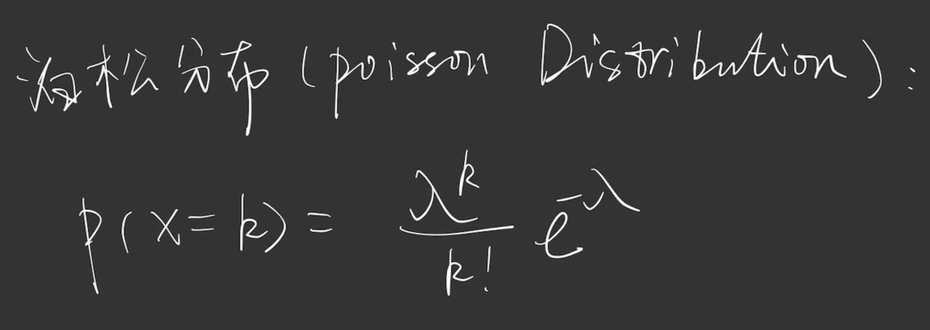 泊松分布 (poisson Distribution):
p(X=k) = \frac{λ^k}{k!} e^{-λ}